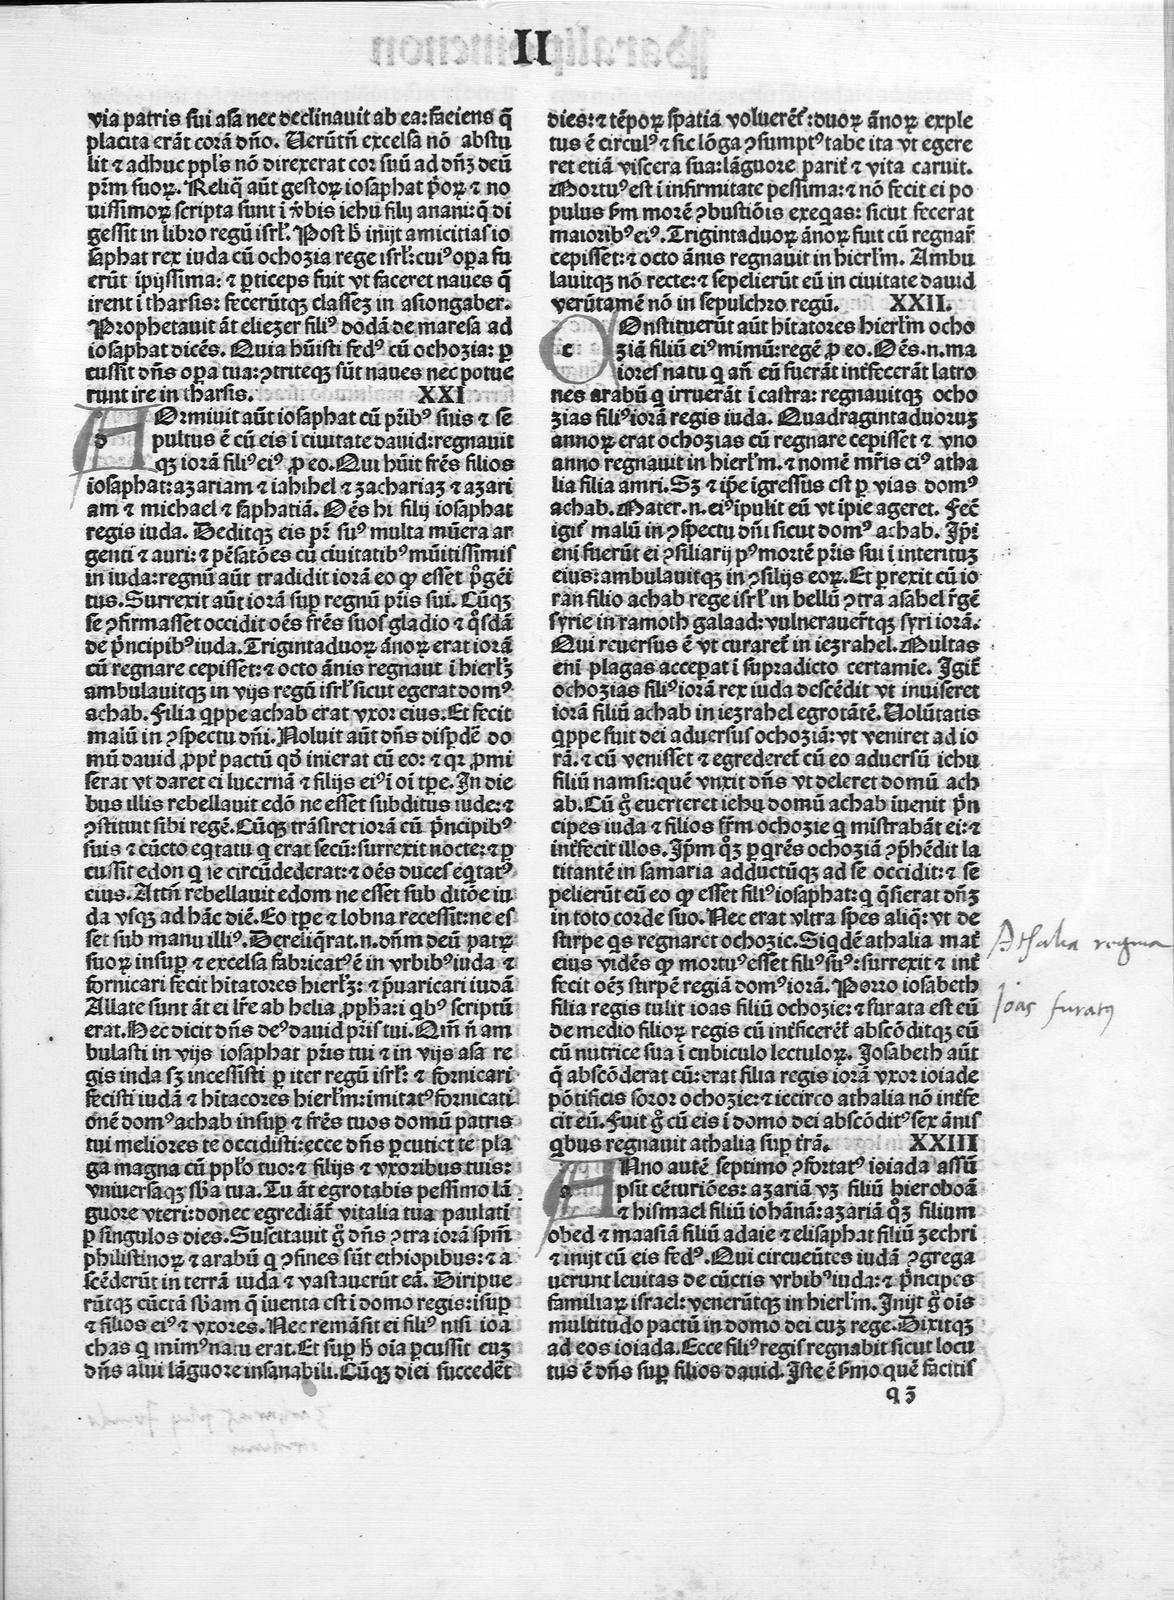 II
via patris sui asa nec declinauit ab ea: faciens q̄
placita erāt corā dn̄o. Uerūtn̄ excelsa nō abstu
lit ⁊ adhuc ppl's nō direxerat cor suū ad dn̄ʒ deū
pr̄m suoꝝ. Reliq̄ aūt gestoꝝ iosaphat p̄oꝝ ⁊ no
uissimoꝝ scripta sunt ī v̄bis iehu filij anani: q̄ di
gessit in libro regū isrl'. Post h̄ inijt amicitias io
saphat rex iuda cū ochozia rege isrl': cuiꝰ oꝑa fu
erūt īpijssima: ⁊ ꝑticeps fuit vt faceret naues q̄
irent ī tharsis: fecerūtqꝫ classeʒ in asiongaber.
Prophetauit āt eliezer filiꝰ dodā de maresa ad
iosaphat dicēs. Quia hūisti fedꝰ cū ochozia: ꝑ
cussit dn̄s oꝑa tua: ꝯtriteqꝫ sūt naues nec potue
runt ire in tharsis. XXI
Ormiuit aūt iosaphat cū pr̄ibꝰ suis ⁊ se
d pultus ē cū eis ī ciuitate dauid: regnauit
qꝫ iorā filiꝰ eiꝰ ꝓ eo. Qui hūit fr̄es filios
iosaphat: azariam ⁊ iahihel ⁊ zachariaʒ ⁊ azari
am ⁊ michael ⁊ saphatiā. Oēs hi filij iosaphat
regis iuda. Deditqꝫ eis pr̄ suꝰ multa mūera ar
genti ⁊ auri: ⁊ pēsatōes cū ciuitatibꝰ mūitissimis
in iuda: regnū aūt tradidit iorā eo ꝙ esset p̄gēi
tus. Surrexit aūt iorā suꝑ regnū pr̄is sui. Cūqꝫ
se ꝯfirmasset occidit oēs fr̄es suos gladio ⁊ q̊sdā
de p̄ncipibꝰ iuda. Trigintaduoꝝ ānoꝝ erat iorā
cū regnare cepisset: ⁊ octo ānis regnaut ī hierl'ʒ
ambulauitqꝫ in vijs regū isrl' sicut egerat domꝰ
achab. Filia qꝑpe achab erat vxor eius. Et fecit
malū in ꝯspectu dn̄i. Noluit aūt dn̄s disꝑdē do
mū dauid ꝓpt̄ pactū qđ inierat cū eo: ⁊ qꝛ ꝓmi
serat vt daret ei lucernā ⁊ filijs eiꝰ ī oī tꝑe. In die
bus illis rebellauit edō ne esset subditus iude: ⁊
ꝯstituit sibi regē. Cūqꝫ trāsiret iorā cū p̄ncipibꝰ
suis ⁊ cūcto eq̄tatu q̄ erat secū: surrexit nocte: ⁊ ꝑ
cussit edon q̄ se circūdederat: ⁊ oēs duces eq̄tatꝰ
eius. Attn̄ rebellauit edom ne esset sub ditōe iu
da vsqꝫ ad hāc diē. Eo tꝑe ⁊ lobna recessit: ne es
set sub manu illiꝰ. Dereliq̄rat .n. dn̄m deū patꝝ
suoꝝ insuꝑ ⁊ excelsa fabricatꝰ ē in vrbibꝰ iuda ⁊
fornicari fecit hitatores hierl'ʒ: ⁊ p̄uaricari iudā
Allate sunt āt ei lr̄e ab helia ꝓph̄a: ī qbꝰ scriptū
erat. Hec dicit dn̄s deꝰ dauid pr̄is tui. Qm̄ n̄ am
bulasti in vijs iosaphat pr̄is tui ⁊ in vijs asa re
gis iuda sʒ incessisti ꝑ iter regū isrl': ⁊ fornicari
fecisti iudā ⁊ hitatores hierl'm: imitatꝰ fornicati
onē domꝰ achab insuꝑ ⁊ fr̄es tuos domū patris
tui meliores te occidisti: ecce dn̄s ꝑcutiet te pla
ga magna cū ppl'o tuo: ⁊ filijs ⁊ vxoribus tuis:
vniuersaqꝫ sb̄a tua. Tu āt egrotabis pessimo lā
guore vteri: donec egrediāt̄ vitalia tua paulatī
ꝑ singulos dies. Suscitauit g̊ dn̄s ꝯtra iorā spm̄
philistinoꝝ ⁊ arabū q̄ ꝯfines sūt ethiopibus: ⁊ a
scēderūt in terrā iuda ⁊ vastauerūt eā. Diripue
rūtqꝫ cūctā sb̄am q̄ iuenta est ī domo regis: isuꝑ
⁊ filios eiꝰ ⁊ vxores. Nec remāsit ei filiꝰ nisi ioa
chas q̄ mimꝰ natu erat. Et suꝑ h̄ oīa ꝑcussit euʒ
dn̄s alui lāguore insanabili. Cūqꝫ diei succedēt
dies: ⁊ tēpoꝝ spatia voluerēt̄: duoꝝ ānoꝝ exple
tus ē circulꝰ ⁊ sic lōga ꝯsumptꝰ tabe ita vt egere
ret etiā viscera sua: lāguore parit̄ ⁊ vita caruit.
Mortuꝰ est ī infirmitate pessima: ⁊ nō fecit ei po
pulus sm̄ morē ꝯbustiōis exeq̄as: sicut fecerat
maioribꝰ eiꝰ. Trigintaduoꝝ ānoꝝ fuit cū regnar̄
cepisset: ⁊ octo ānis regnauit in hierl'm. Ambu
lauitqꝫ nō recte: ⁊ sepelierūt eū in ciuitate dauid
verūtamē nō in sepulchro regū. XXII.
Onstituerūt aūt hitatores hierl'm ocho
c ziā filiū eiꝰ mimū: regē ꝓ eo. Oēs .n. ma
iores natu q̄ an̄ eū fuerāt int̄fecerāt latro
nes arabū q̄ irruerāt ī castra: regnauitqꝫ ocho
zias filiꝰ iorā regis iuda. Quadragintaduoruʒ
annoꝝ erat ochozias cū regnare cepisset ⁊ vno
anno regnauit in hierl'm. ⁊ nomē mr̄is eiꝰ atha
lia filia amri. Sʒ ⁊ ip̄e īgressus est ꝑ vias domꝰ
achab. Mater .n. eiꝰ īpulit eū vt īpie ageret. Fec̄
igit̄ malū in ꝯspectu dn̄i sicut domꝰ achab. Ip̄i
eni fuerūt ei ꝯsiliarij pꝰ mortē pr̄is sui ī interituʒ
eius: ambulauitqꝫ in ꝯsilijs eoꝝ. Et ꝑrexit cū io
ran filio achab rege isrl' in bellū ꝯtra asahel r̄gē
syrie in ramoth galaad: vulnerauer̄tqꝫ syri iorā.
Qui reuersus ē vt curaret̄ in iezrahel. Multas
eni plagas acceꝑat ī supradicto certamīe. Igit̄
ochozias filiꝰ iorā rex iuda descēdit vt inuiseret
iorā filiū achab in iezrahel egrotātē. Uolūtatis
qꝑpe fuit dei aduersus ochoziā: vt veniret ad io
rā. ⁊ cū venisset ⁊ egrederet̄ cū eo aduersū iehu
filiū namsi: quē vnxit dn̄s vt deleret domū ach
ab. Cū g̊ euerteret iehu domū achab iuenit p̄n
cipes iuda ⁊ filios fr̄m ochozie q̄ mistrabāt ei: ⁊
int̄fecit illos. Ip̄m qꝫ ꝑq̄rēs ochoziā ꝯp̄hēdit la
titantē in samaria adductūqꝫ ad se occidit: ⁊ se
pelierūt eū eo ꝙ esset filiꝰ iosaphat: q̄ q̄sierat dn̄ʒ
in toto corde suo. Nec erat vltra spes aliq̄: vt de
stirpe q̄s regnaret ochozie. Siqdē athalia mat̄
eius vidēs ꝙ mortuꝰ esset filiꝰ suꝰ: surrexit ⁊ int̄
fecit oēʒ stirpē regiā domꝰ iorā. Porro iosabeth
filia regis tulit ioas filiū ochozie: ⁊ furata est eū
de medio filioꝝ regis cū int̄ficerēt̄ abscōditqꝫ eū
cū nutrice sua ī cubiculo lectuloꝝ. Iosabeth aūt
q̄ abscōderat eū: erat filia regis iorā vxor ioiade
pōtificis soror ochozie: ⁊ iccirco athalia nō int̄fe
cit eū. Fuit g̊ cū eis ī domo dei abscōditꝰ sex ānis
qbus regnauit athalia suꝑ tr̄ā. XXIII
Nno autē septimo ꝯfortatꝰ ioiada assū
a psit cēturiōes: azariā vʒ filiū hieroboā
⁊ hismael filiū iohānā: azariā qꝫ filium
obed ⁊ maasiā filiū adaie ⁊ elisaphat filiū zechri
⁊ inijt cū eis fedꝰ. Qui circueūtes iudā ꝯgrega
uerunt leuitas de cūctis vrbibꝰ iuda: ⁊ p̄ncipes
familiaꝝ israel: venerūtqꝫ in hierl'm. Inijt g̊ oīs
multitudo pactū in domo dei cuʒ rege. Dixitqꝫ
ad eos ioiada. Ecce filiꝰ regis regnabit sicut locu
tus ē dn̄s suꝑ filios dauid. Iste ē sm̄o quē facitis
q 3
Athalia regina
Ioas furatꝰ